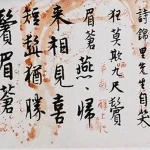 詩錦里先生自笑
狂莫欺九尺鬢
眉蒼燕歸
來相見喜
短猶勝
鬢眉蒼